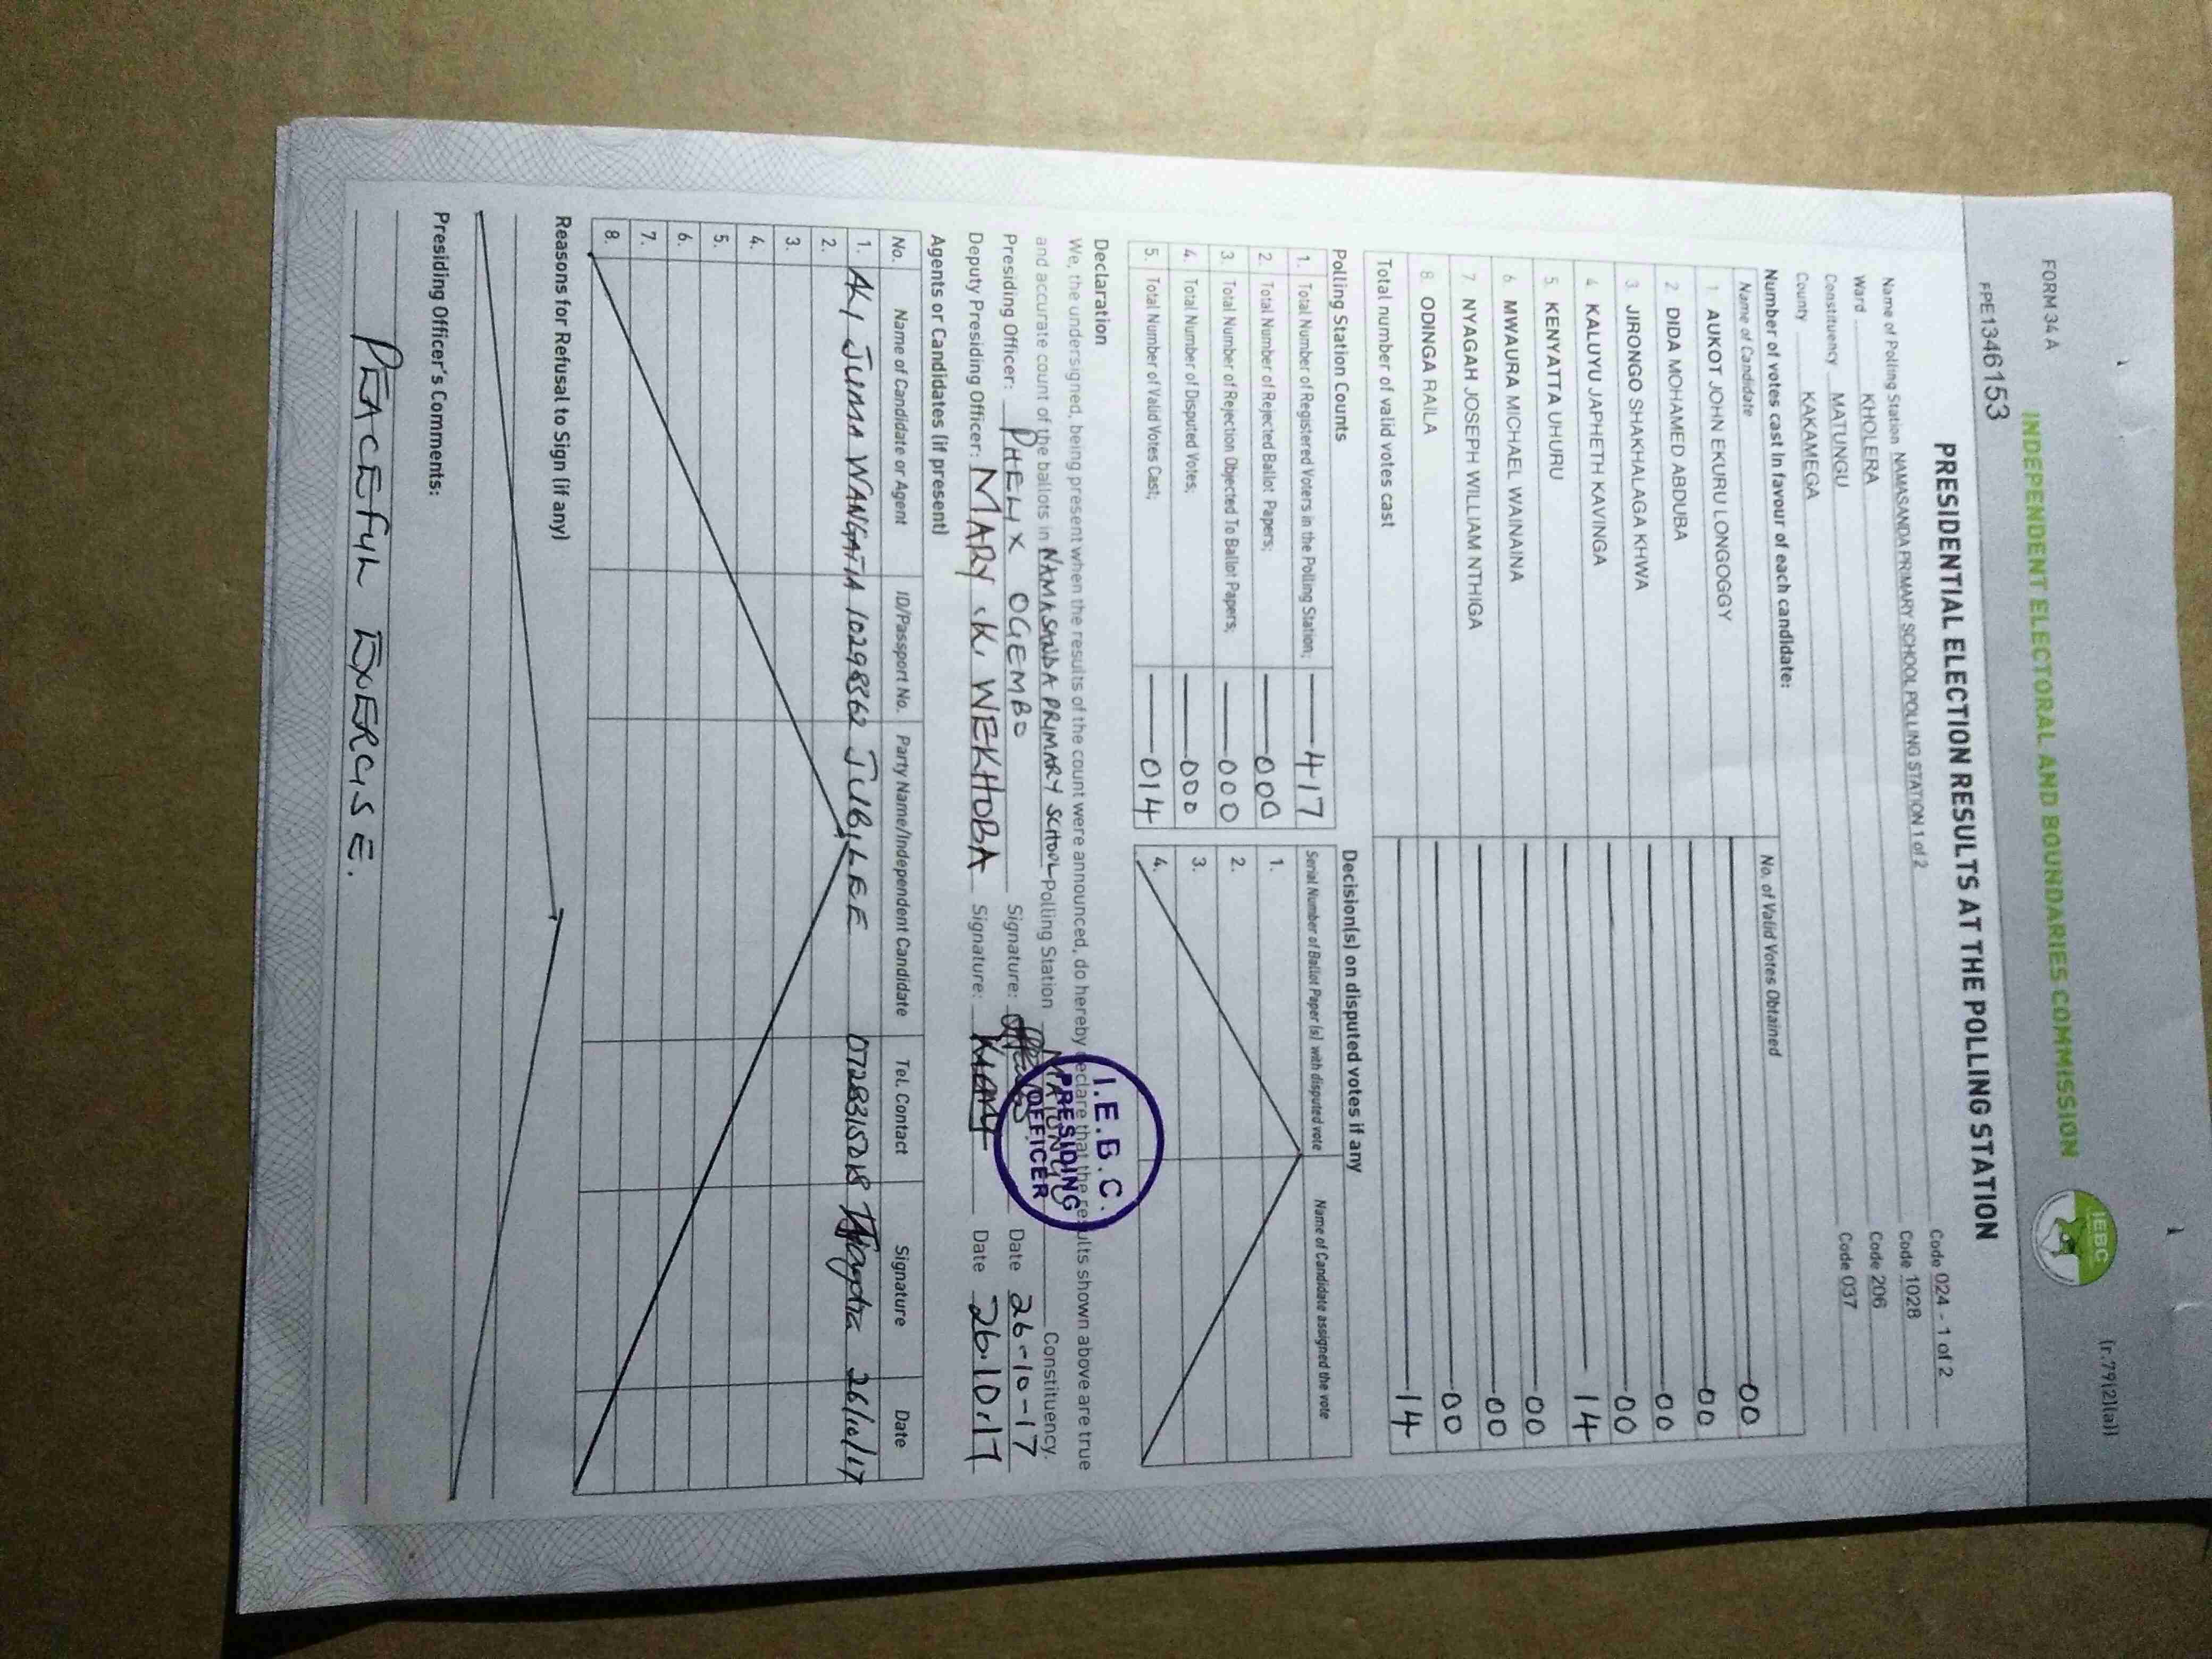 FORM 34 A
(r.79(2)(a))
INDEPENDENT ELECTORAL AND BOUNDARIES COMMISSION
IEBC
FPE1346153
PRESIDENTIAL ELECTION RESULTS AT THE POLLING STATION
Name of Polling Station NAMASANDA PRIMARY SCHOOL POLLING STATION 1 of 2 Code 024 - 1 of 2
Ward KHOLERA Code 1028
Constituency MATUNGU Code 206
County KAKAMEGA Code 037
Number of votes cast in favour of each candidate:
Name of Candidate No. of Valid Votes Obtained
1 AUKOT JOHN EKURU LONGOGGY 00
2 DIDA MOHAMED ABDUBA 00
3 JIRONGO SHAKHALAGA KHWA 00
4 KALUYU JAPHETH KAVINGA 00
5 KENYATTA UHURU 14
6 MWAURA MICHAEL WAINAINA 00
7 NYAGAH JOSEPH WILLIAM NTHIGA 00
8 ODINGA RAILA 00
Total number of valid votes cast 14
Polling Station Counts
1. Total Number of Registered Voters in the Polling Station; 417
2. Total Number of Rejected Ballot Papers; 000
3. Total Number of Rejection Objected To Ballot Papers; 000
4. Total Number of Disputed Votes; 000
5. Total Number of Valid Votes Cast; 014
Decision(s) on disputed votes if any
Serial Number of Ballot Paper (s) with disputed vote Name of Candidate assigned the vote
1.
2.
3.
4.
Declaration
We, the undersigned, being present when the results of the count were announced, do hereby declare that the results shown above are true
and accurate count of the ballots in NAMASANDA PRIMARY SCHOOL Polling Station MATUNGU Constituency.
Presiding Officer: PHELIX OGEMBO Signature: Date 26-10-17
Deputy Presiding Officer: MARY .K. WEKHOBA Signature: Date 26.10.17
I.E.B.C.
PRESIDING
OFFICER
Agents or Candidates (if present)
No. Name of Candidate or Agent ID/Passport No. Party Name/Independent Candidate Tel. Contact Signature Date
1. JUMA WANGATIA 10298562 JUBILEE 26/10/17
2.
3.
4.
5.
6.
7.
8.
Reasons for Refusal to Sign (if any)
Presiding Officer's Comments:
PEACEFUL EXERCISE.